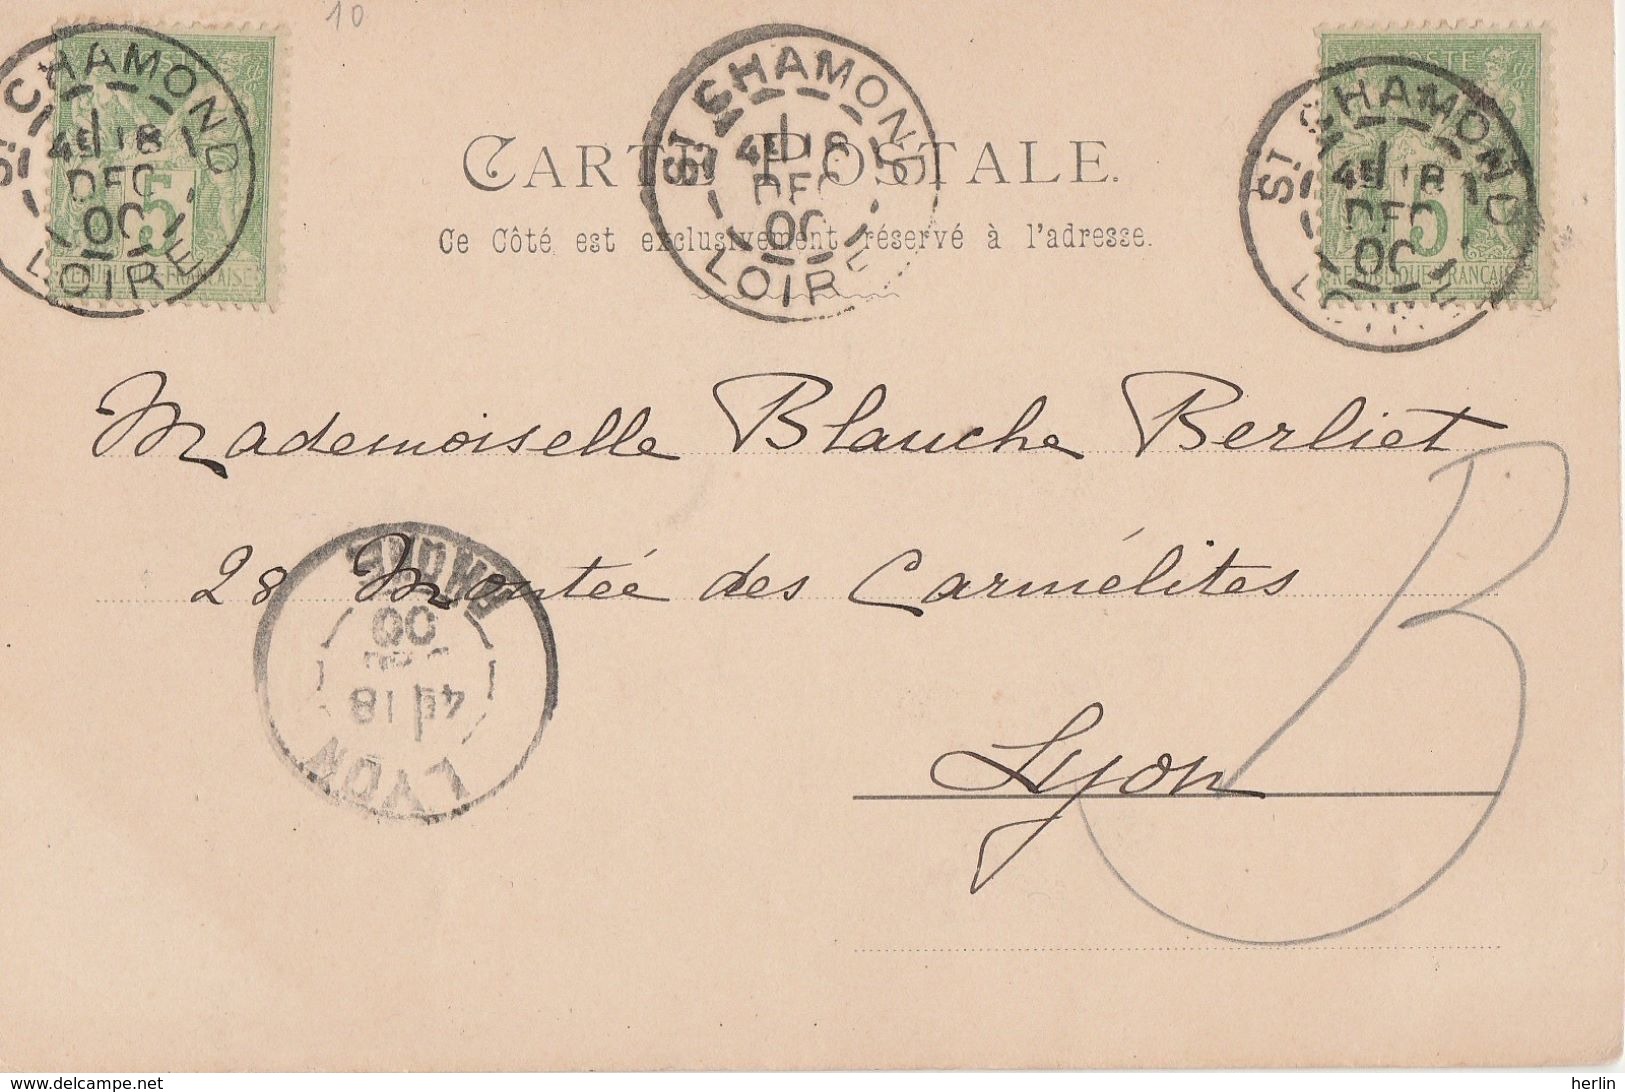 10
ST CHAMOND
4E 18
DEC
00
LOIRE
5
REPUBLIQUE FRANCAISE
ST CHAMOND
4E 18
DEC
00
LOIRE
POSTE
ST CHAMOND
4E 18
DEC
00
5
REPUBLIQUE FRANCAISE
CARTE POSTALE.
Ce Côté est exclusivement réservé à l'adresse.
Mademoiselle Blanche Berliet
28 Montée des Carmélites
Lyon
B
LYON
4E 18
00
RHONE
www.delcampe.net
herlin